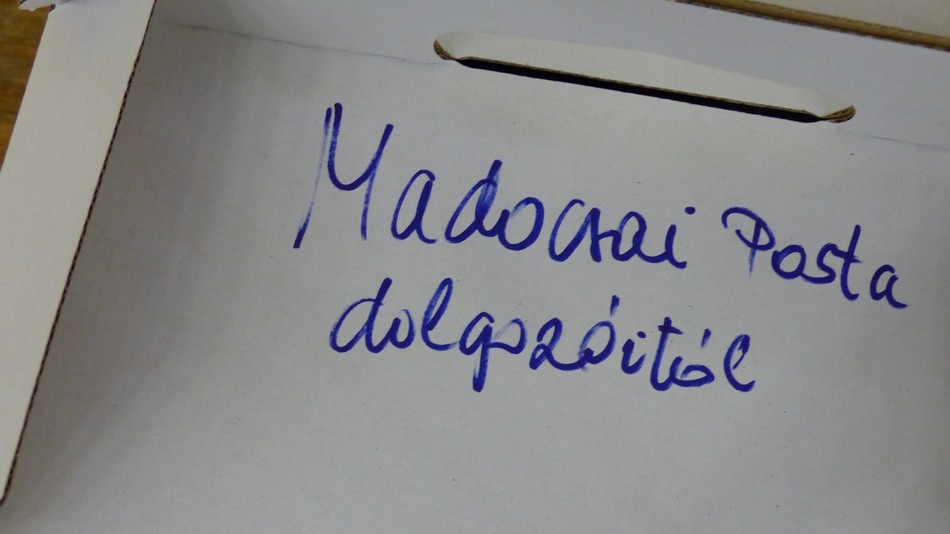 Madocsai Posta
dolgozóitól